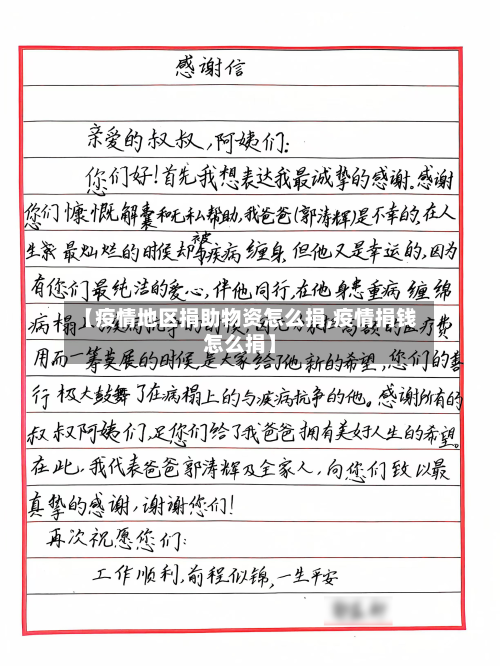 感谢信
亲爱的叔叔,阿姨们:
您们好!首先我想表达我最诚挚的感谢。感谢
您们慷慨解囊和无私帮助,我爸爸(郭涛辉)是不幸的,在人
生最灿烂的时候却被疾病缠身,但他又是幸运的,因为
有您们最纯洁的爱心,伴他同行,在他身患重病缠绵
病榻
【疫情地区捐助物资怎么捐,疫情捐钱
怎么捐】
医疗费
用而一筹莫展的时候,是大家给了他新的希望,您们的善
行极大鼓舞了在病榻上的与疾病抗争的他。感谢所有的
叔叔阿姨们,是您们给了我爸爸拥有美好人生的希望。
在此,我代表爸爸郭涛辉及全家人,向您们致以最
真挚的感谢,谢谢您们!
再次祝愿您们:
工作顺利,前程似锦,一生平安